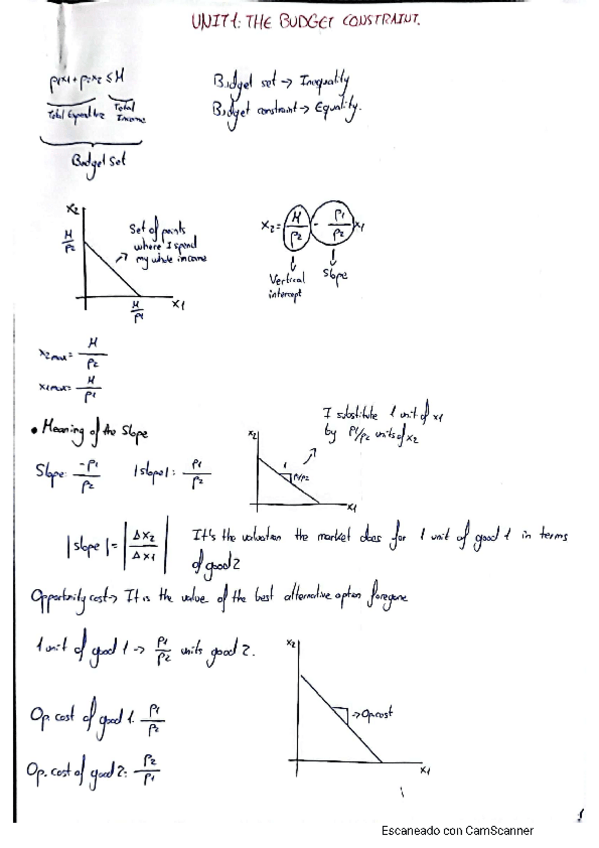 UNIT 1: THE BUDGET CONSTRAINT.
p1x1 + p2x2 ≤ M
Total Expenditure
Total Income
Budget Set
Budget set → Inequality
Budget constraint → Equality.
x2
M/p2
Set of points
where I spend
my whole income
M/p1
x1
x2 = M/p2 - p1/p2 x1
Vertical intercept
Slope
x2max = M/p2
x1max = M/p1
• Meaning of the Slope
Slope: -p1/p2
|slope|: p1/p2
I substitute 1 unit of x1
by p1/p2 units of x2
x2
1
p1/p2
x1
|slope| = |Δx2/Δx1|
It's the valuation the market does for 1 unit of good 1 in terms
of good 2
Opportunity cost → It is the value of the best alternative option foregone
1 unit of good 1 → p1/p2 units good 2.
Op. cost of good 1: p1/p2
Op. cost of good 2: p2/p1
x2
→ Op.cost
x1
1
Escaneado con CamScanner